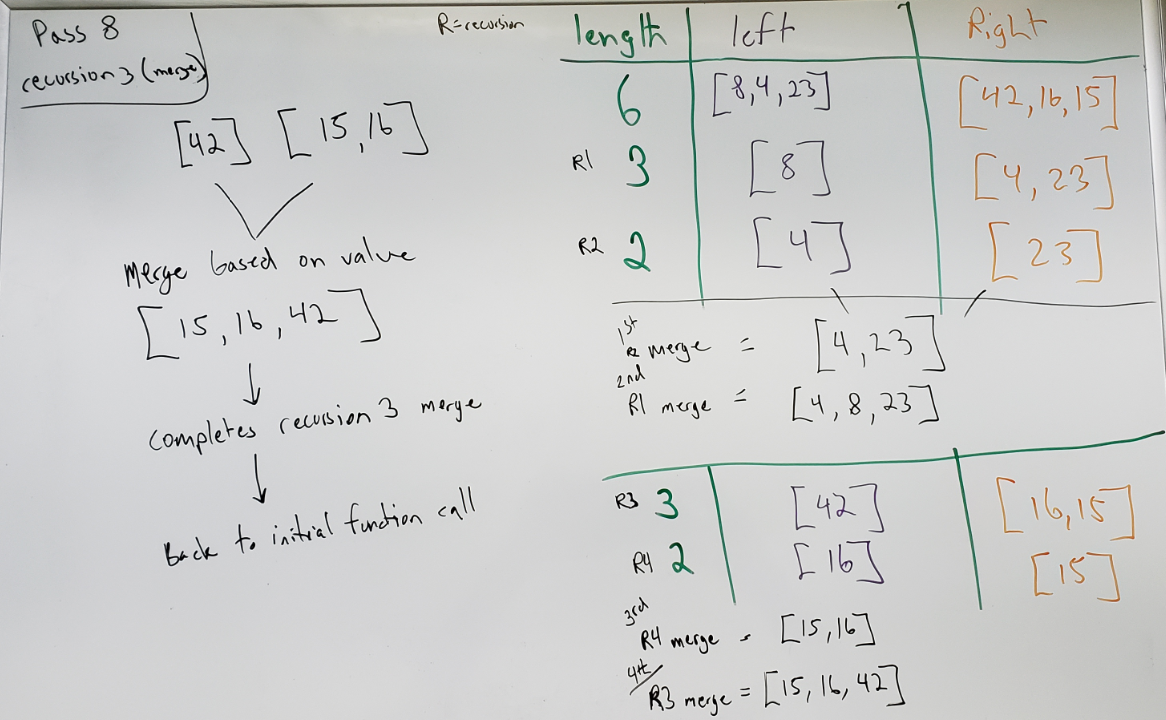 Pass 8
recursion 3 (merge)
[42] [15,16]
Merge based on value
[15, 16, 42]
Completes recursion 3 merge
Back to initial function call
R=recursion
length left Right
6 [8,4,23] [42,16,15]
R1 3 [8] [4,23]
R2 2 [4] [23]
1st
R2 merge = [4,23]
2nd
R1 merge = [4,8,23]
R3 3 [42] [16,15]
R4 2 [16] [15]
3rd
R4 merge = [15,16]
4th
R3 merge = [15, 16, 42]